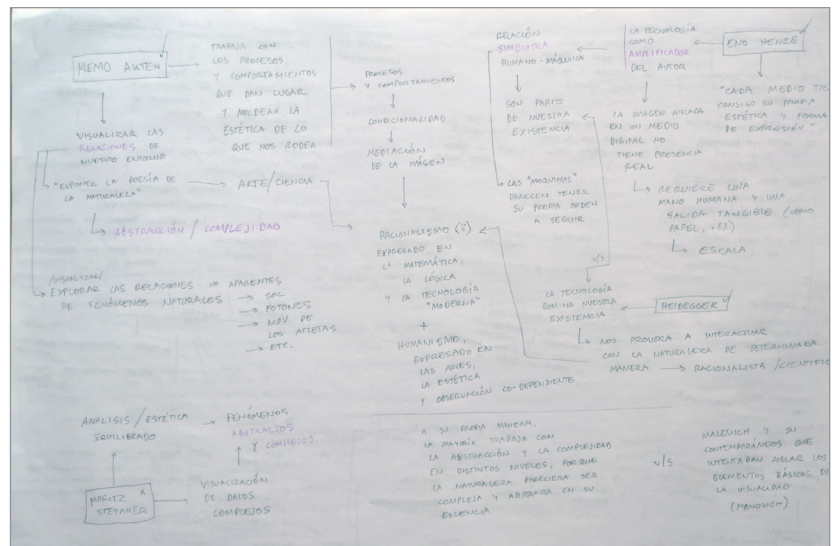 MEMO AKTEN
TRABAJA CON
LOS PROCESOS
Y COMPORTAMIENTOS
QUE DAN LUGAR
Y MOLDEAN LA
ESTÉTICA DE LO
QUE NOS RODEA
VISUALIZAR LAS
RELACIONES DE
NUESTRO ENTORNO
"EXPONER LA POESÍA DE
LA NATURALEZA"
ARTE/CIENCIA
ABSTRACCIÓN / COMPLEJIDAD
/VISUALIZAR/
EXPLORAR LAS RELACIONES NO APARENTES
DE FENÓMENOS NATURALES
SOL
FOTONES
MOV. DE
LOS ATLETAS
ETC.
PROCESOS
Y COMPORTAMIENTOS
CONDICIONALIDAD
MEDIACIÓN
DE LA IMAGEN
RACIONALISMO (?)
EXPRESADO EN
LA MATEMÁTICA,
LA LÓGICA
Y LA TECNOLOGÍA
"MODERNA"
+
HUMANISMO,
EXPRESADO EN
LAS ARTES,
LA ESTÉTICA
Y OBSERVACIÓN CO-DEPENDIENTE
RELACIÓN
SIMBIÓTICA
HUMANO-MÁQUINA
SON PARTE
DE NUESTRA
EXISTENCIA
LAS "MÁQUINAS"
PARECEN TENER
SU PROPIA ORDEN
A SEGUIR
LA TECNOLOGÍA
COMO
AMPLIFICADOR
DEL AUTOR
ENO HENZE
"CADA MEDIO
CONSIGO SU PROPIA
ESTÉTICA Y FORMA
DE EXPRESIÓN"
LA IMAGEN AISLADA
EN UN MEDIO
DIGITAL NO
TIENE PRESENCIA
REAL
REQUIERE UNA
MANO HUMANA Y UNA
SALIDA TANGIBLE (COMO
PAPEL,
ESCALA
V/S
LA TECNOLOGÍA
DOMINA NUESTRA
EXISTENCIA
HEIDEGGER
NOS PROVOCA A INTERACTUAR
CON LA NATURALEZA DE DETERMINADA
MANERA → RACIONALISTA /
ANALISIS / ESTÉTICA
EQUILIBRADO
FENÓMENOS
ABSTRACTOS
Y COMPLEJOS
MORITZ
STEFANER
VISUALIZACIÓN
DE DATOS
COMPLEJOS
A SU PROPIA MANERA,
LA MAYORÍA TRABAJA CON
LA ABSTRACCIÓN Y LA COMPLEJIDAD
EN DISTINTOS NIVELES, PORQUE
LA NATURALEZA PARECIERA SER
COMPLEJA Y ABSTRACTA EN SU
ESCENCIA
V/S
MALEVICH Y SU
CONTEMPORÁNEOS QUE
INTENTABAN AISLAR LOS
ELEMENTOS BÁSICOS DE
LA VISUALIDAD
(MANOVICH)